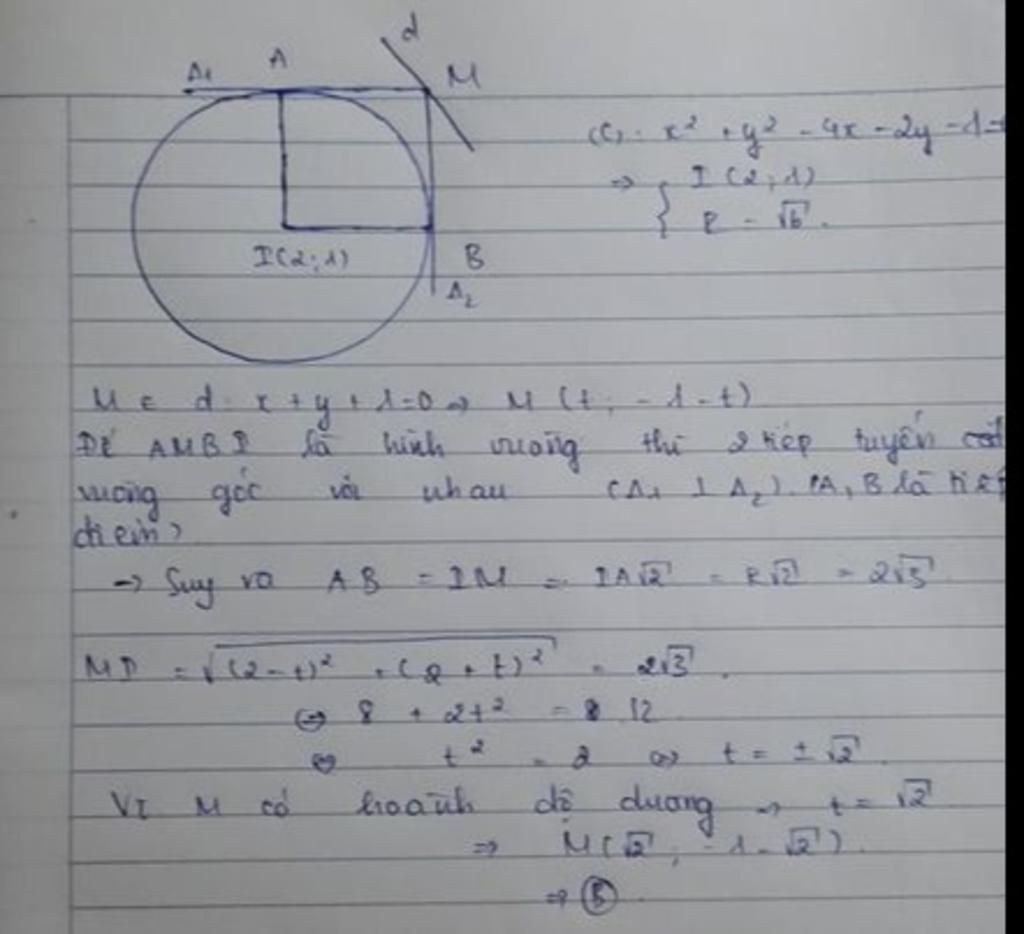 d
Δ₁ A M
(C): x² + y² - 4x - 2y - 1 =
⇒ { I (2; 1)
R = √6.
I(2; 1) B
Δ₂
M ∈ d: x + y + 1 = 0 ⇒ M (t; -1 - t)
Để AMBI là hình vuông thì 2 tiếp tuyến
vuông góc với nhau (Δ₁ ⊥ Δ₂). (A, B là tiếp
điểm)
→ Suy ra AB = IM = IA√2 = R√2 = 2√3
MI = √((2-t)² + (2+t)²) = 2√3.
⇔ 8 + 2t² = 12
⇔ t² = 2 ⇔ t = ±√2.
Vì M có hoành độ dương → t = √2
⇒ M(√2; -1 - √2).
⇒ Ⓑ.